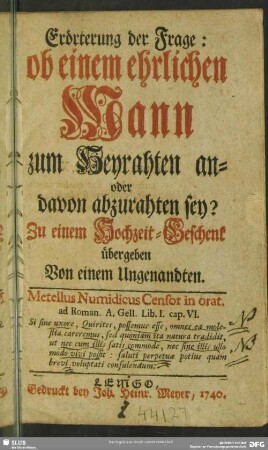 Erörterung der Frage:
ob einem ehrlichen
Mann
zum Heyrahten an-
oder
davon abzurahten sey?
Zu einem Hochzeit-Geschenk
übergeben
Von einem Ungenandten.
Metellus Numidicus Censor in orat.
ad Roman. A. Gell. Lib. I. cap. VI.
Si sine uxore, Quirites, possemus esse, omnes ea mole-
stia careremus, sed quoniam ita natura tradidit,
ut nec cum illis satis commode, nec sine illis ullo
modo vivi possit: saluti perpetuæ potius quam
brevi voluptati consulendum.
LEMGO,
Gedruckt bey Joh. Heinr. Meyer, 1740.
SLUB